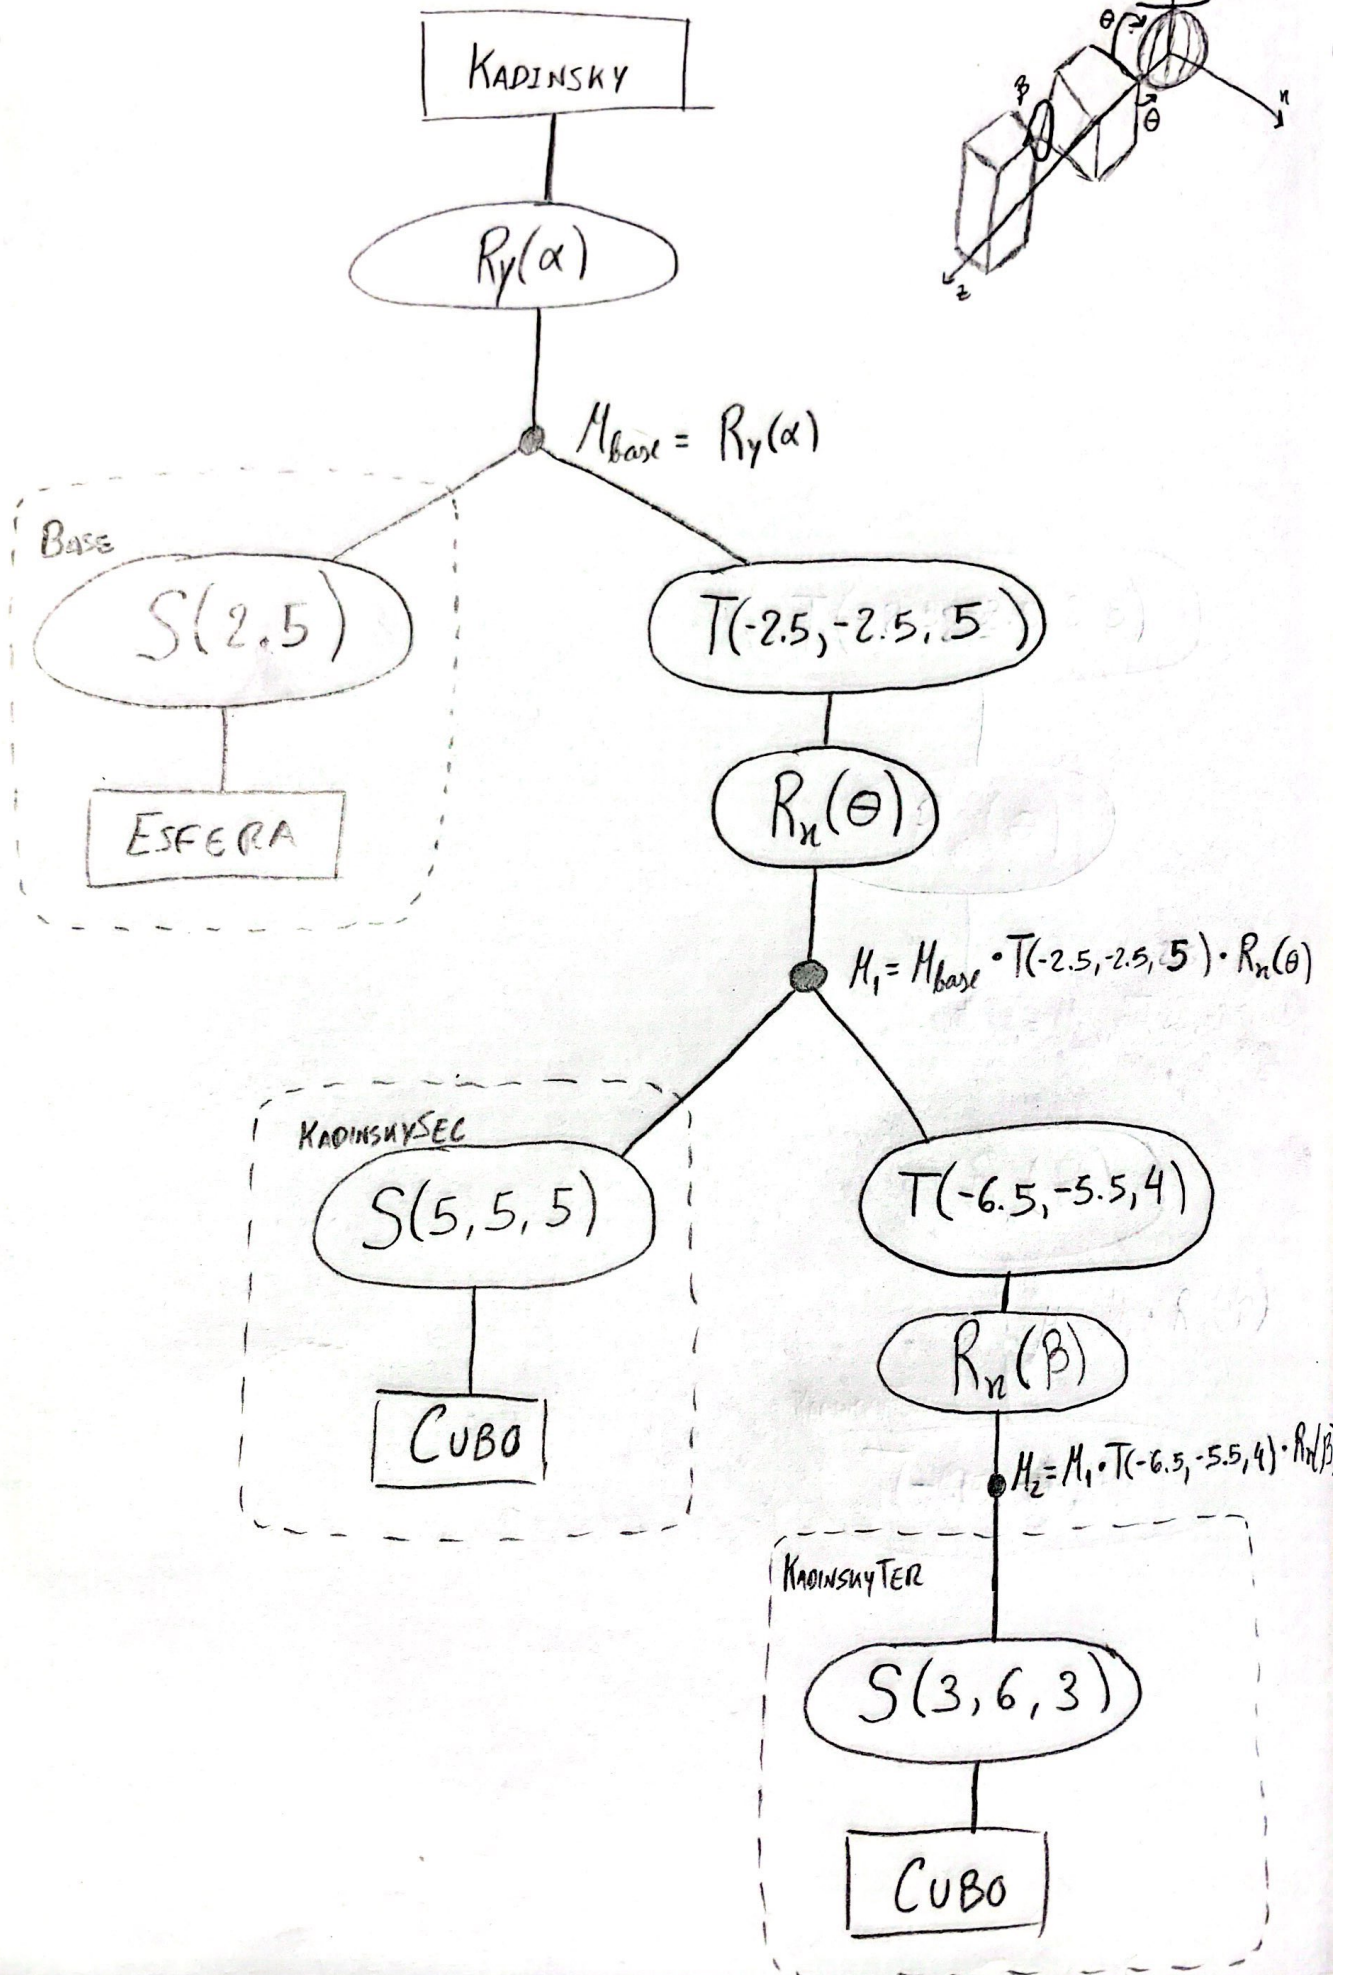 KADINSKY
θ
β
θ
x
z
Ry(α)
Mbase = Ry(α)
BASE
S(2.5)
T(-2.5,-2.5, 5)
Rx(θ)
ESFERA
M1 = Mbase · T(-2.5,-2.5, 5) · Rx(θ)
KADINSKYSEC
S(5,5,5)
T(-6.5,-5.5,4)
Rx(β)
CUBO
M2 = M1 · T(-6.5,-5.5,4) · Rx(β
KADINSKYTER
S(3,6,3)
CUBO